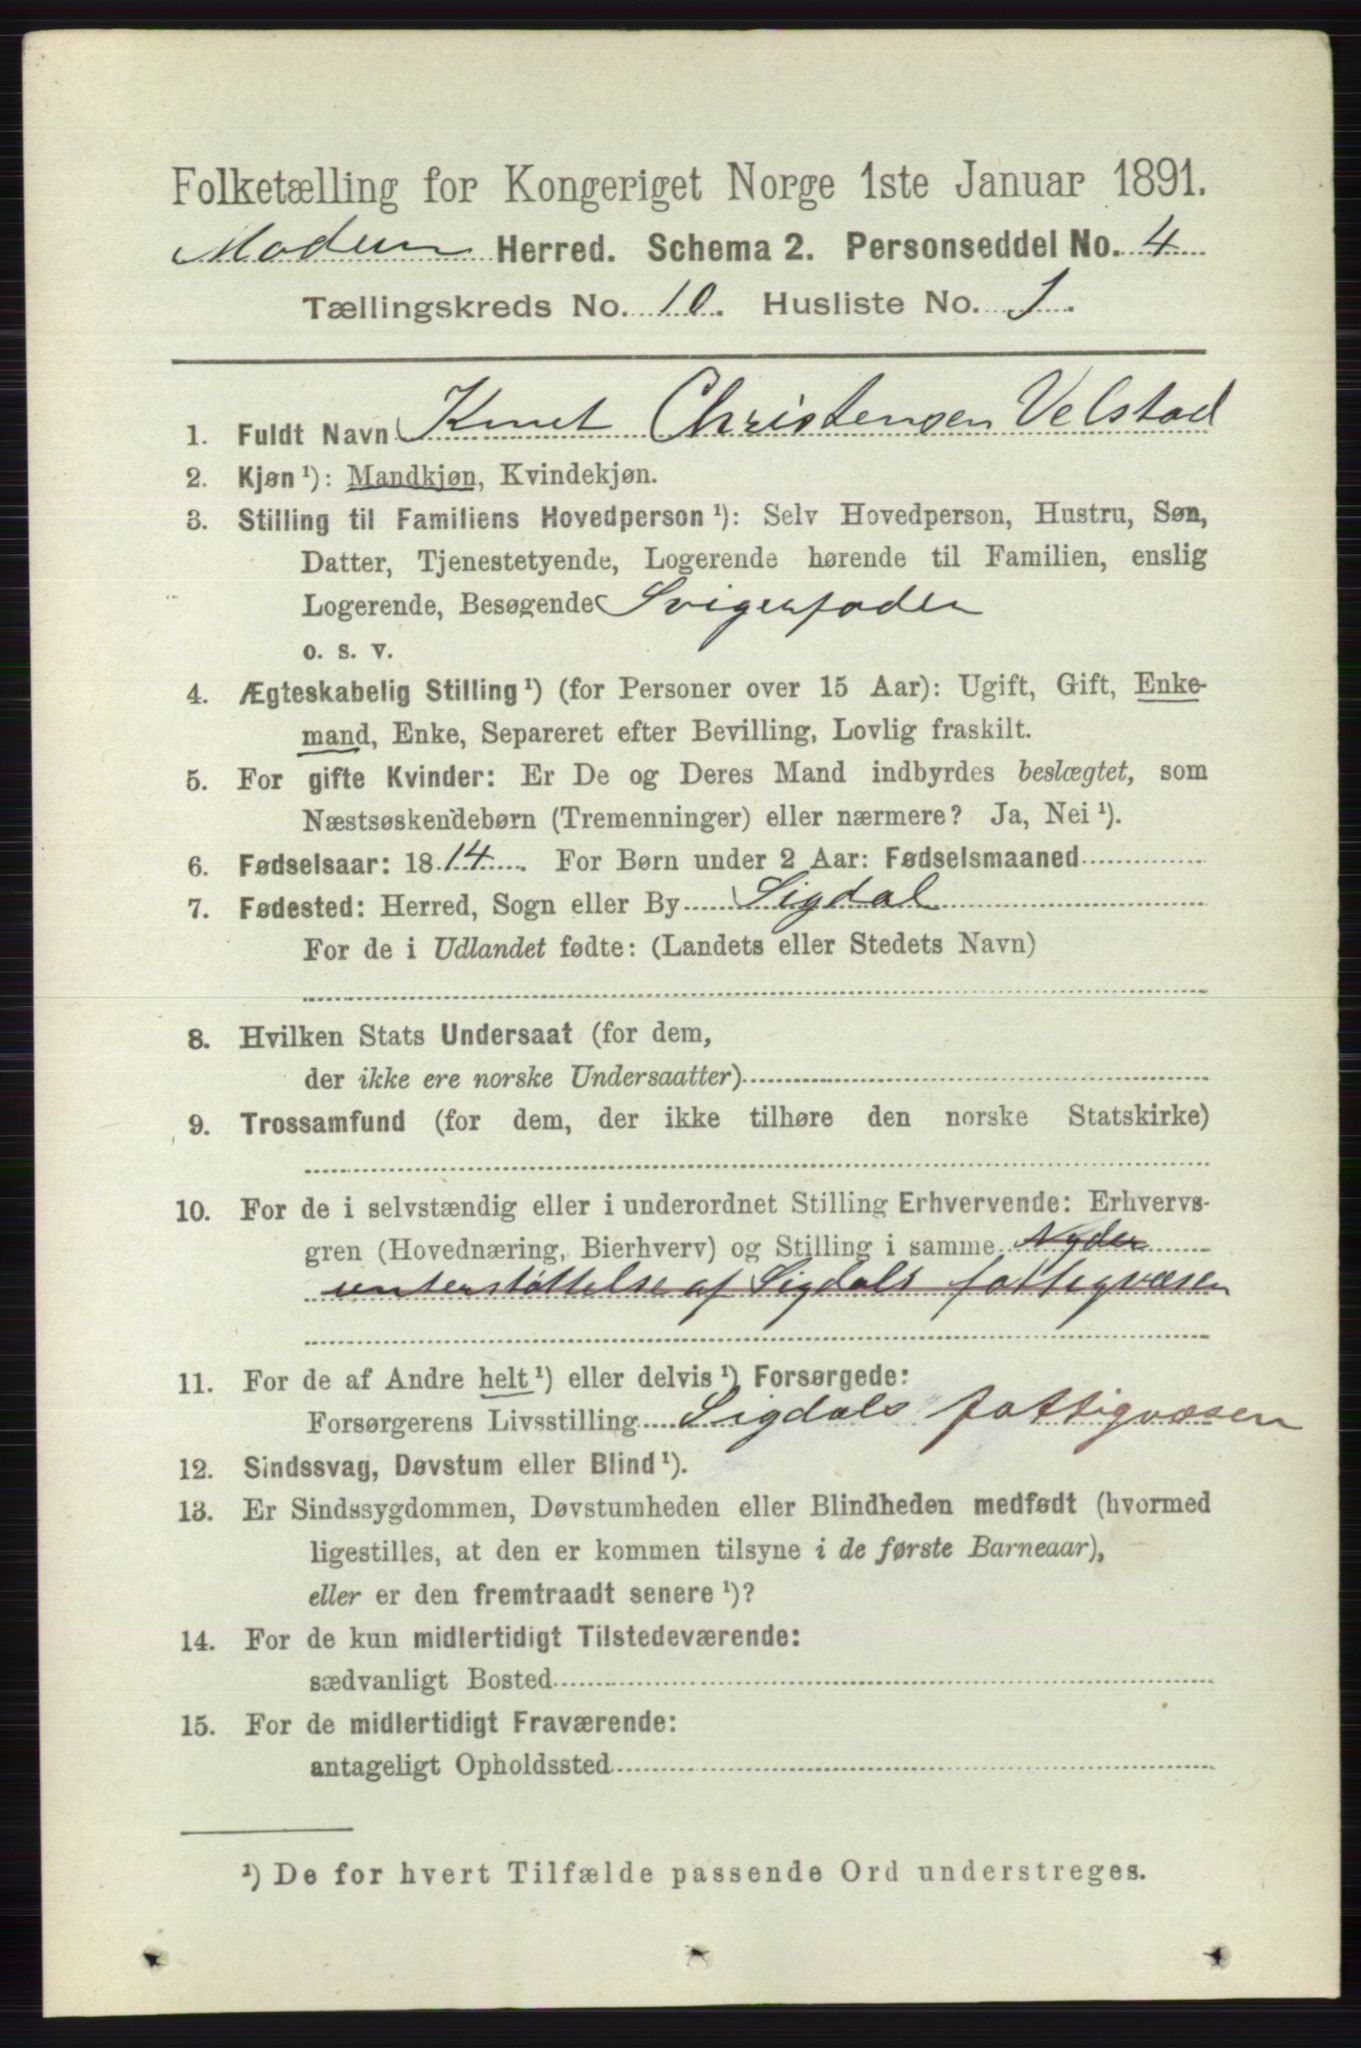 Folketælling for Kongeriget Norge 1ste Januar 1891.
Modum Herred. Schema 2. Personseddel No. 4
Tællingskreds No. 10. Husliste No. 1.
1. Fuldt Navn Knut Christensen Velstad
2. Kjøn ¹): Mandkjøn, Kvindekjøn.
3. Stilling til Familiens Hovedperson ¹): Selv Hovedperson, Hustru, Søn,
Datter, Tjenestetyende, Logerende hørende til Familien, enslig
Logerende, Besøgende Svigerfader
o. s. v.
4. Ægteskabelig Stilling ¹) (for Personer over 15 Aar): Ugift, Gift, Enke-
mand, Enke, Separeret efter Bevilling, Lovlig fraskilt.
5. For gifte Kvinder: Er De og Deres Mand indbyrdes beslægtet, som
Næstsøskendebørn (Tremenninger) eller nærmere? Ja, Nei ¹).
6. Fødselsaar: 1814. For Børn under 2 Aar: Fødselsmaaned
7. Fødested: Herred, Sogn eller By Sigdal
For de i Udlandet fødte: (Landets eller Stedets Navn)
8. Hvilken Stats Undersaat (for dem,
der ikke ere norske Undersaatter)
9. Trossamfund (for dem, der ikke tilhøre den norske Statskirke)
10. For de i selvstændig eller i underordnet Stilling Erhvervende: Erhvervs-
gren (Hovednæring, Bierhverv) og Stilling i samme Nyder
understøttelse af Sigdals fattigvæsen
11. For de af Andre helt ¹) eller delvis ¹) Forsørgede:
Forsørgerens Livsstilling Sigdals fattigvæsen
12. Sindssvag, Døvstum eller Blind ¹).
13. Er Sindssygdommen, Døvstumheden eller Blindheden medfødt (hvormed
ligestilles, at den er kommen tilsyne i de første Barneaar),
eller er den fremtraadt senere ¹)?
14. For de kun midlertidigt Tilstedeværende:
sædvanligt Bosted
15. For de midlertidigt Fraværende:
antageligt Opholdssted
¹) De for hvert Tilfælde passende Ord understreges.